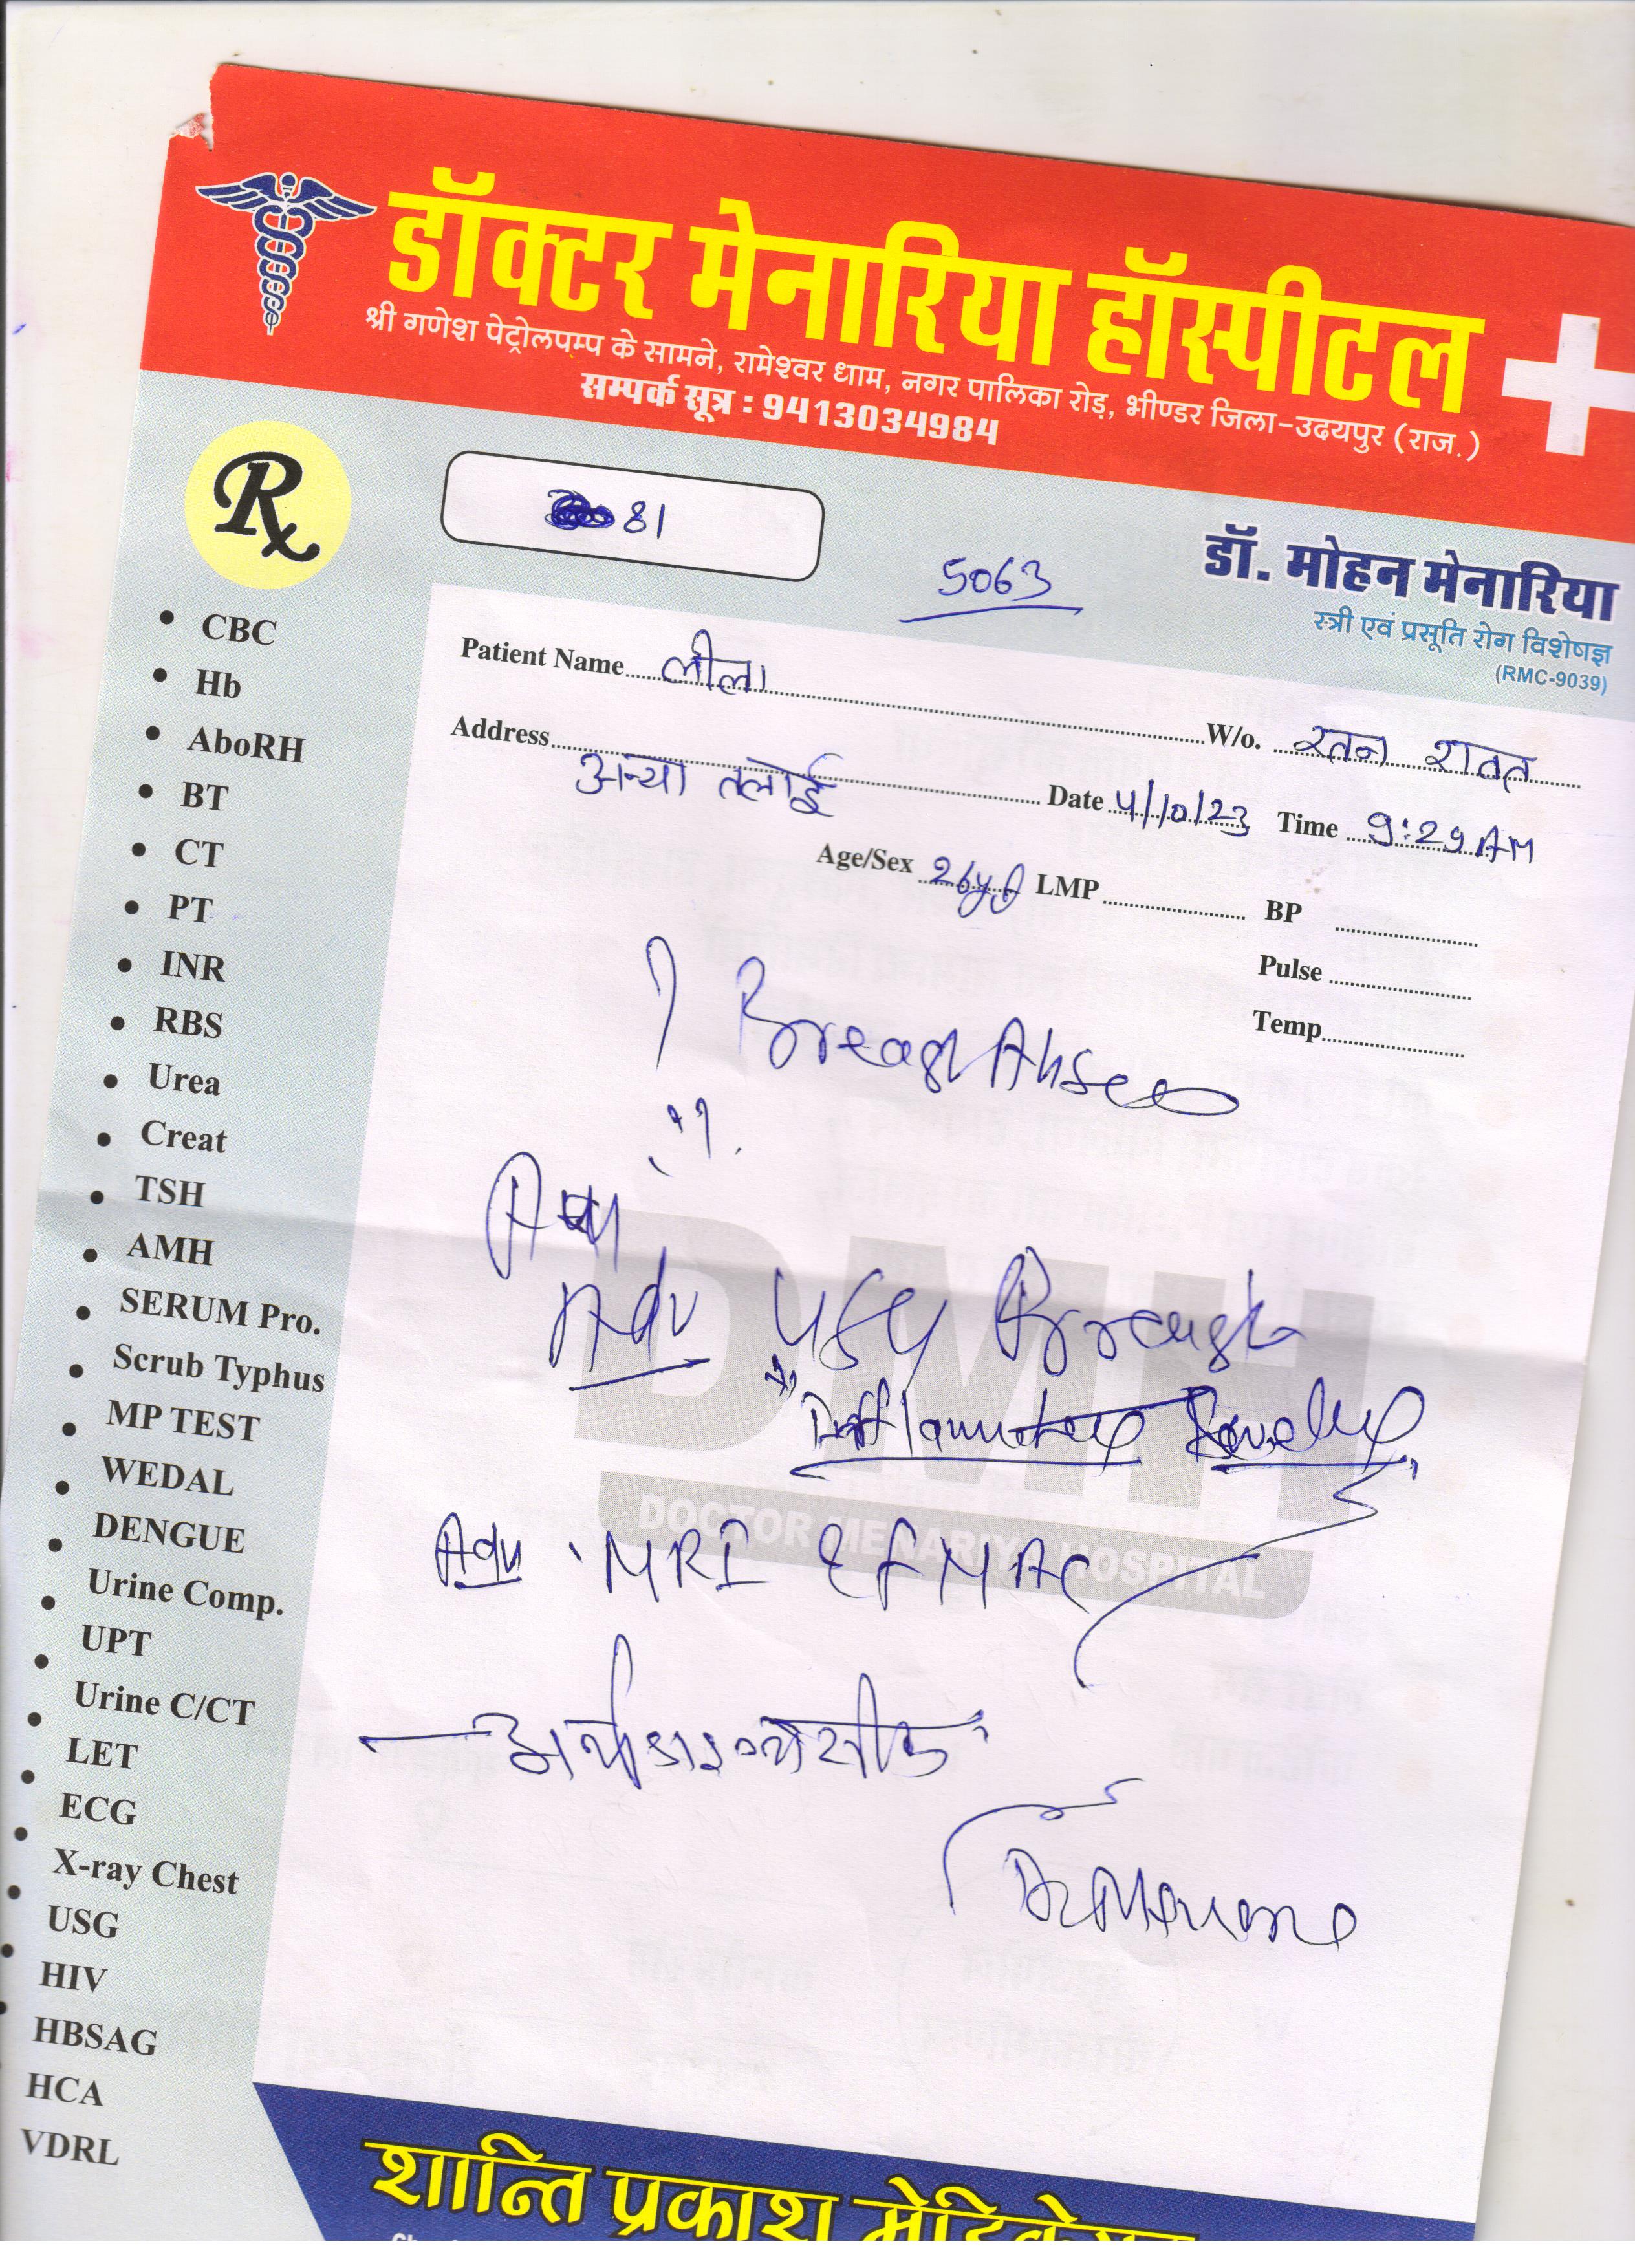 डॉक्टर मेनारिया हॉस्पीटल
श्री गणेश पेट्रोलपम्प के सामने, रामेश्वर धाम, नगर पालिका रोड़, भीण्डर जिला-उदयपुर (राज.)
सम्पर्क सूत्र : 9413034984
Rx
81
5063
डॉ. मोहन मेनारिया
स्त्री एवं प्रसूति रोग विशेषज्ञ
(RMC-9039)
Patient Name लीला W/o. रतन रावत
Address तलाई Date 4/10/23 Time 9:29 AM
Age/Sex 26y LMP BP
Pulse
Temp
CBC
Hb
AboRH
BT
CT
PT
INR
RBS
Urea
Creat
TSH
AMH
SERUM Pro.
Scrub Typhus
MP TEST
WEDAL
DENGUE
Urine Comp.
UPT
Urine C/CT
LET
ECG
X-ray Chest
USG
HIV
HBSAG
HCA
VDRL
? Breast
Adv USG Breast
Adv MRI
DMH
DOCTOR MENARIYA HOSPITAL
शान्ति प्रकाश